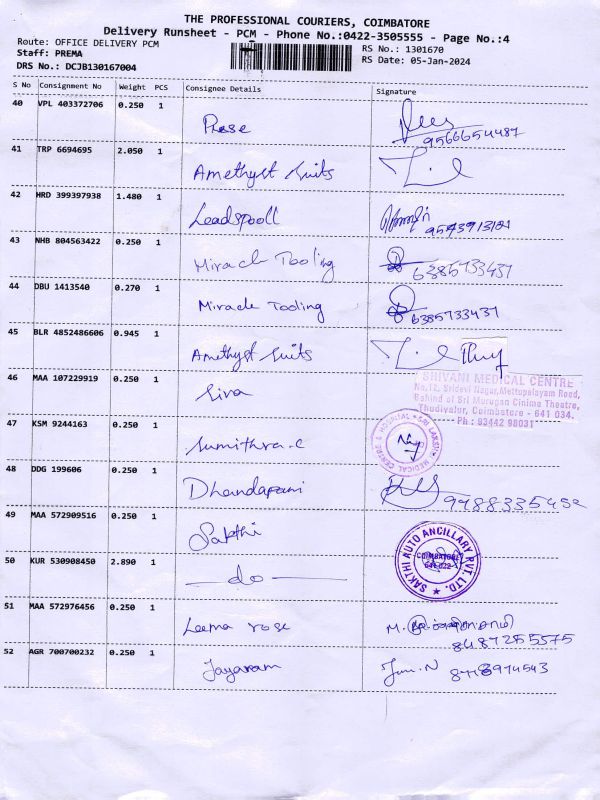 THE PROFESSIONAL COURIERS, COIMBATORE
Delivery Runsheet - PCM - Phone No.:0422-3505555 - Page No.:4
Route: OFFICE DELIVERY PCM
RS No.: 1301670
Staff: PREMA
RS Date: 05-Jan-2024
DRS No.: DCJB130167004
S No Consignment No Weight PCS Consignee Details Signature
40 VPL 403372706 0.250 1
9566654487
41 TRP 6694695 2.050 1
Amethyst Suits
42 HRD 399397938 1.480 1
Leadspoll
43 NHB 804563422 0.250 1
Miracle Tooling 6385733437
44 DBU 1413540 0.270 1
Miracle Tooling 6385733437
45 BLR 4852486606 0.945 1
Amethyst Suits
46 MAA 107229919 0.250 1
Siva
SHIVANI MEDICAL CENTRE
No.12, Sridevi Nagar, Mettupalayam Road,
Behind of Sri Murugan Cinima Theatre,
Thudiyalur, Coimbatore - 641 034.
Ph : 93442 98031
47 KSM 9244163 0.250 1
Sumithra.C
SRI LAKSHMI MEDICAL CENTRE & HOSPITAL
48 DDG 199606 0.250 1
Dhandapani
49 MAA 572909516 0.250 1
Sakthi
SAKTHI AUTO ANCILLARY PVT. LTD.
COIMBATORE
641 022
50 KUR 530908450 2.890 1
do
51 MAA 572976456 0.250 1
Leema rose M.
8487255575
52 AGR 700700232 0.250 1
Jayaram